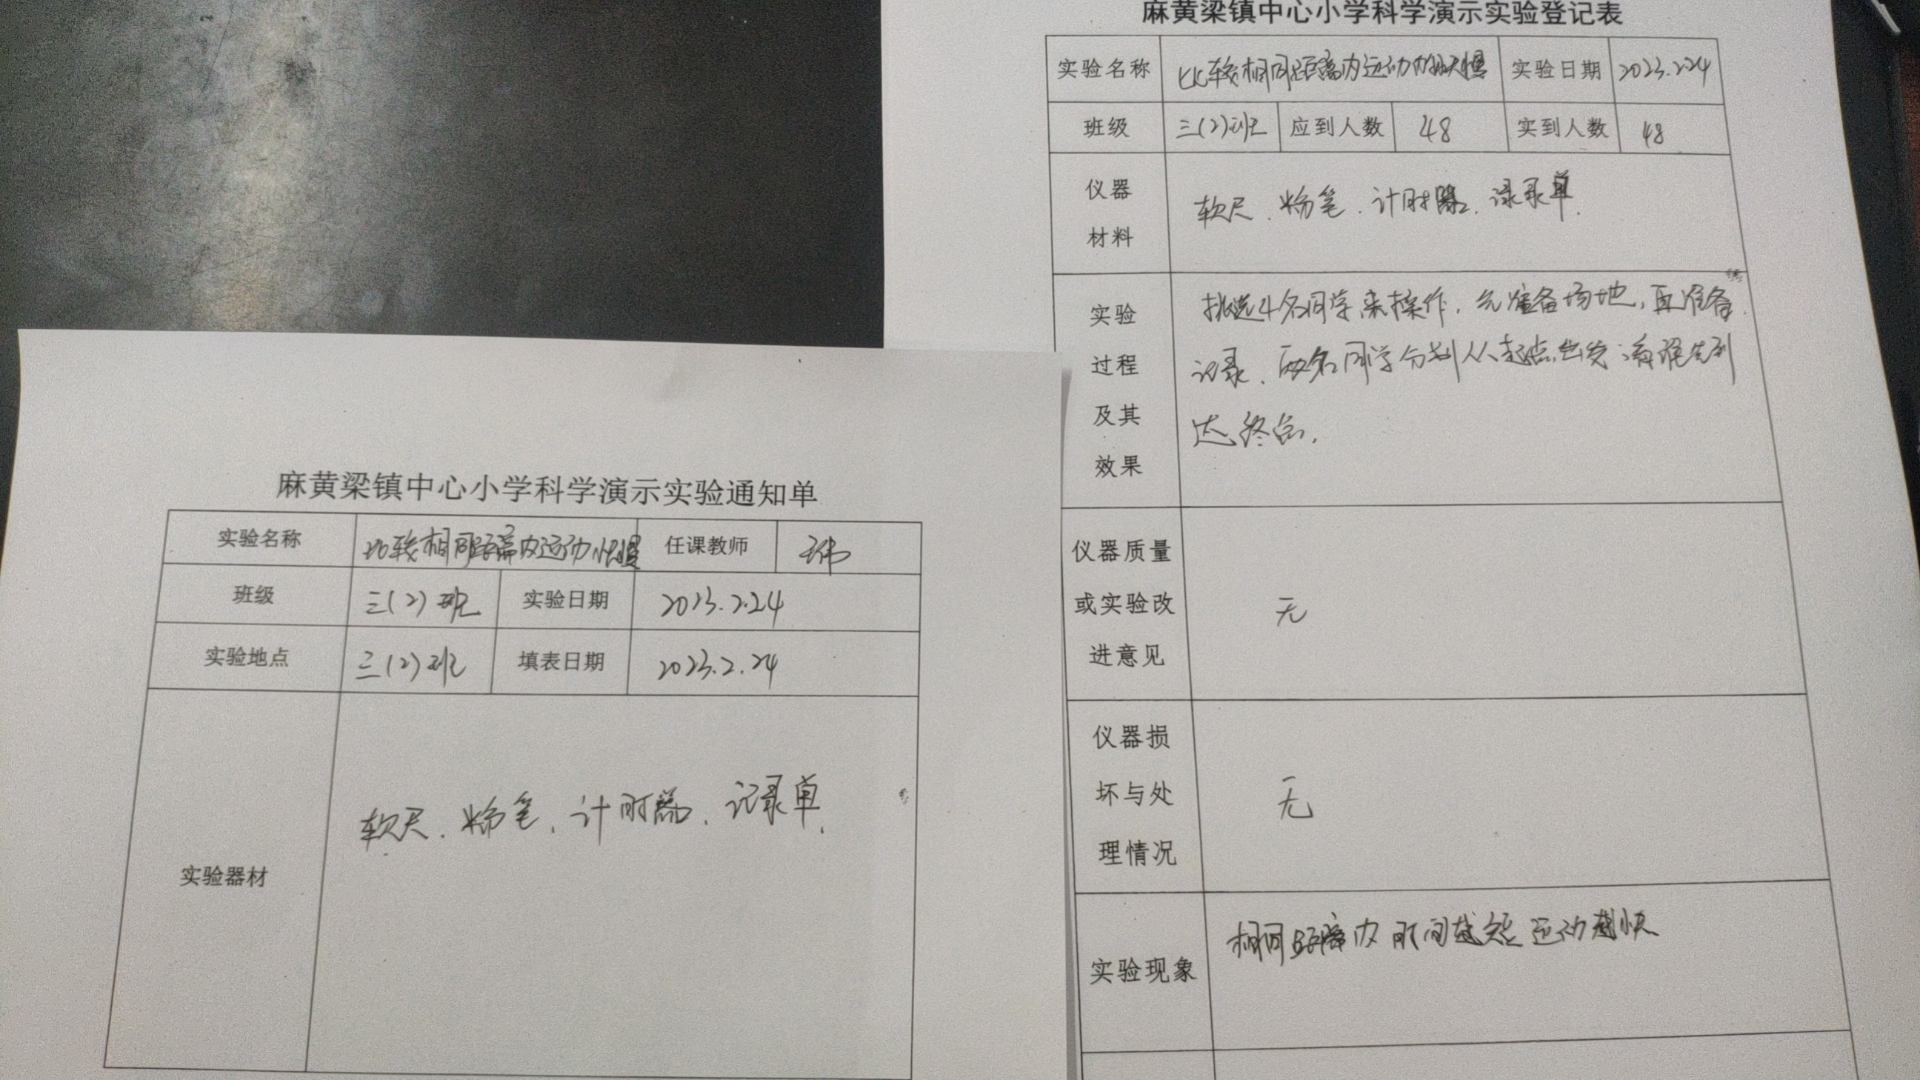 麻黄梁镇中心小学科学演示实验通知单
实验名称 比较相同距离内运动快慢 任课教师
班级 三(2)班 实验日期 2023.2.24
实验地点 三(2)班 填表日期 2023.2.24
实验器材 软尺、粉笔、计时器、记录单
麻黄梁镇中心小学科学演示实验登记表
实验名称 比较相同距离内运动的快慢 实验日期 2023.2.24
班级 三(2)班 应到人数 48 实到人数 48
仪器
材料
软尺、粉笔、计时器、记录单
实验
过程
及其
效果
挑选4名同学来操作,先准备场地,再准备
记录、两名同学分别从起点出发 看谁先到
达终点.
仪器质量
或实验改
进意见
无
仪器损
坏与处
理情况
无
实验现象 相同距离内时间越短运动越快